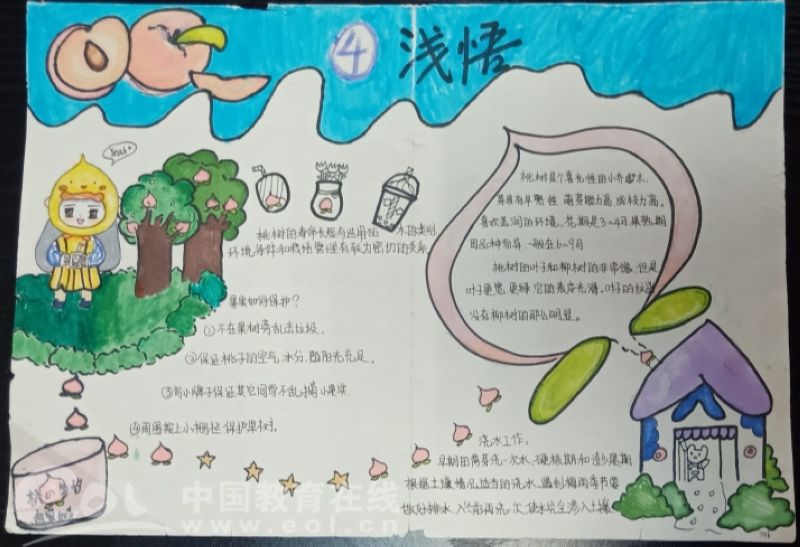 ④ 浅悟
桃树的寿命长短与选用砧木的类别
环境条件和栽培管理有较为密切的关系
果果如何保护?
①不在果树旁乱丢垃圾.
②保证桃子的空气,水分,跟阳光充足.
③写小牌子保证其它同学不乱摘小果实.
④周围按上小栅栏 保护果树.
桃树是个喜光性的小乔木.
芽具有早熟性 萌芽力高 成枝力高.
喜欢温润的环境. 花期是3~4月 果熟期
因品种而异、一般在6~9月
桃树的叶子和柳树的非常像.但是
叶子更宽 更绿 它的表皮光滑,叶子的纹路
没有柳树的那么明显.
浇水工作:
早期的萌芽浇一次水,硬核期和膨果期
根据土壤情况适当的浇水.遇到梅雨季节要
做好排水.入冬前再浇一次.使水完全渗入土壤
中国教育在线
www.eol.cn